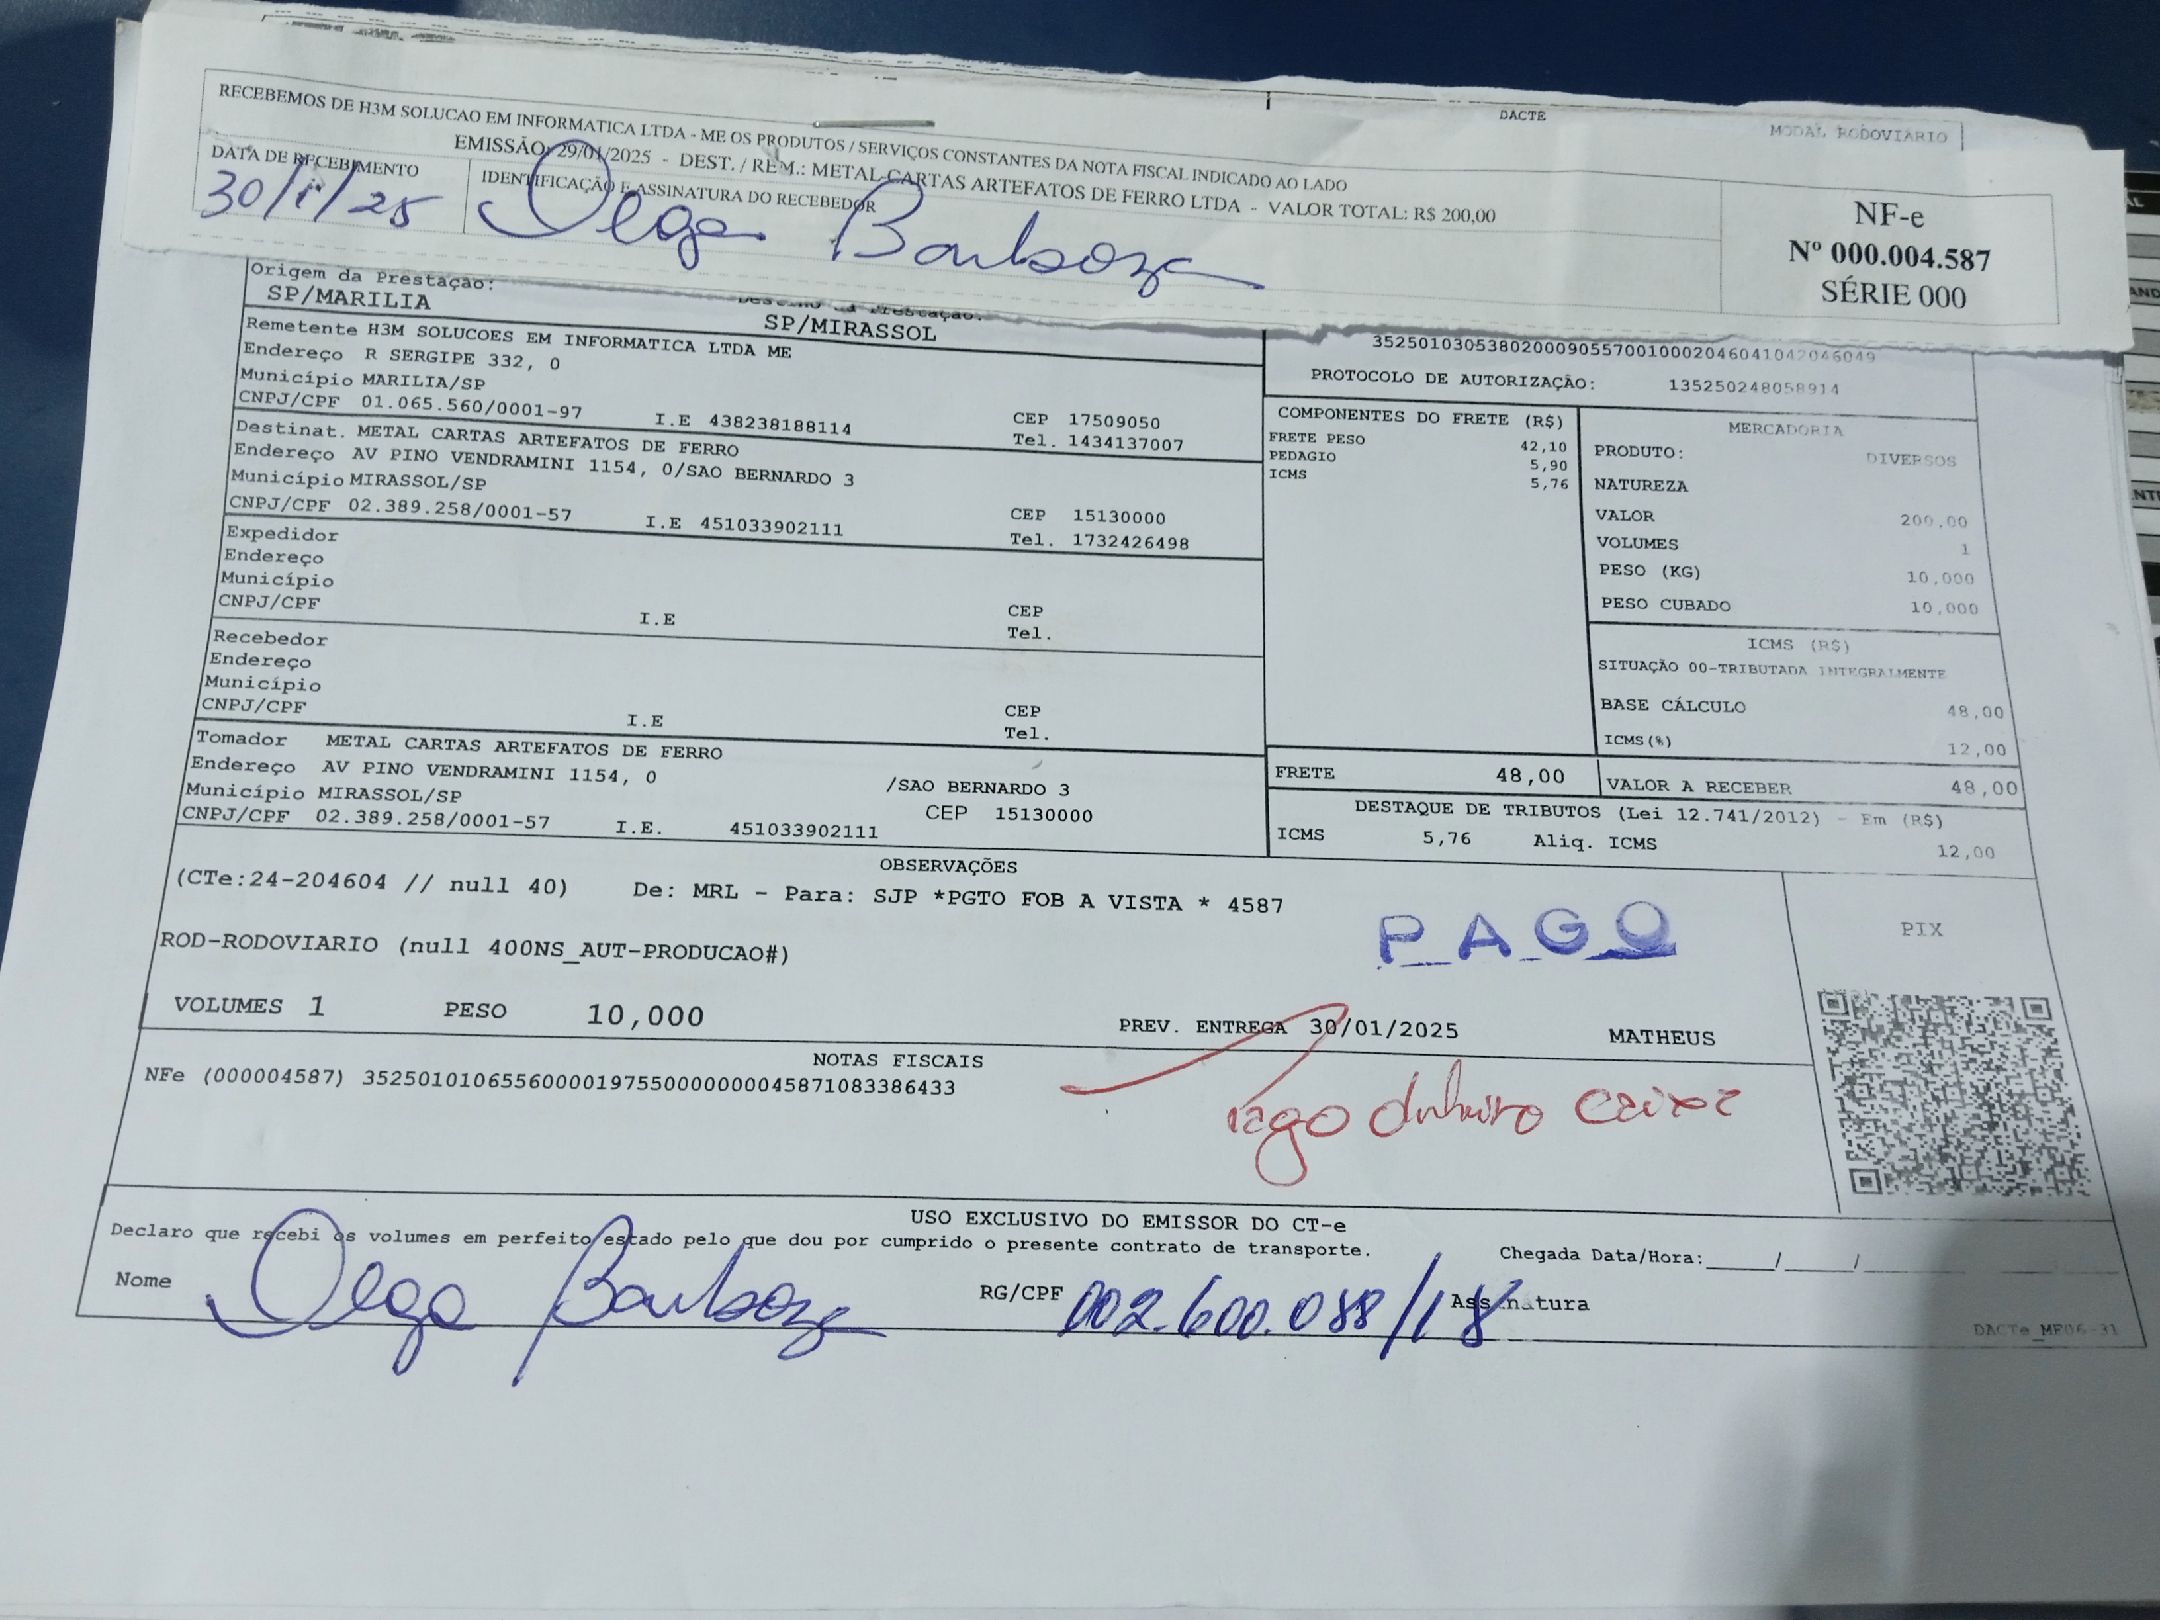 DACTE
MODAL RODOVIARIO
RECEBEMOS DE H3M SOLUCAO EM INFORMATICA LTDA - ME OS PRODUTOS / SERVIÇOS CONSTANTES DA NOTA FISCAL INDICADO AO LADO
EMISSÃO: 29/01/2025 - DEST. / REM.: METAL CARTAS ARTEFATOS DE FERRO LTDA - VALOR TOTAL: R$ 200,00
DATA DE RECEBIMENTO
IDENTIFICAÇÃO E ASSINATURA DO RECEBEDOR
30/1/25
Olga Barboza
NF-e
Nº 000.004.587
SÉRIE 000
Origem da Prestação:
SP/MARILIA
Destino da Prestação:
SP/MIRASSOL
Remetente H3M SOLUCOES EM INFORMATICA LTDA ME
Endereço R SERGIPE 332, 0
Município MARILIA/SP
CNPJ/CPF 01.065.560/0001-97 I.E 438238188114 CEP 17509050
Tel. 1434137007
Destinat. METAL CARTAS ARTEFATOS DE FERRO
Endereço AV PINO VENDRAMINI 1154, 0/SAO BERNARDO 3
Município MIRASSOL/SP
CNPJ/CPF 02.389.258/0001-57 I.E 451033902111 CEP 15130000
Tel. 1732426498
Expedidor
Endereço
Município
CNPJ/CPF I.E CEP
Tel.
Recebedor
Endereço
Município
CNPJ/CPF I.E CEP
Tel.
Tomador METAL CARTAS ARTEFATOS DE FERRO
Endereço AV PINO VENDRAMINI 1154, 0 /SAO BERNARDO 3
Município MIRASSOL/SP CEP 15130000
CNPJ/CPF 02.389.258/0001-57 I.E. 451033902111
35250103053802000905570010002046041042046049
PROTOCOLO DE AUTORIZAÇÃO: 135250248058914
COMPONENTES DO FRETE (R$)
FRETE PESO 42,10
PEDAGIO 5,90
ICMS 5,76
MERCADORIA
PRODUTO: DIVERSOS
NATUREZA
VALOR 200,00
VOLUMES 1
PESO (KG) 10,000
PESO CUBADO 10,000
ICMS (R$)
SITUAÇÃO 00-TRIBUTADA INTEGRALMENTE
BASE CÁLCULO 48,00
ICMS(%) 12,00
FRETE 48,00 VALOR A RECEBER 48,00
DESTAQUE DE TRIBUTOS (Lei 12.741/2012) - Em (R$)
ICMS 5,76 Aliq. ICMS 12,00
OBSERVAÇÕES
(CTe:24-204604 // null 40) De: MRL - Para: SJP *PGTO FOB A VISTA * 4587
PAGO
PIX
ROD-RODOVIARIO (null 400NS_AUT-PRODUCAO#)
VOLUMES 1 PESO 10,000 PREV. ENTREGA 30/01/2025 MATHEUS
NOTAS FISCAIS
NFe (000004587) 35250101065560000197550000000045871083386433
Pago dinheiro caixa
USO EXCLUSIVO DO EMISSOR DO CT-e
Declaro que recebi os volumes em perfeito estado pelo que dou por cumprido o presente contrato de transporte. Chegada Data/Hora:_____/_____/
Nome Olga Barboza RG/CPF 002.600.088/18 Assinatura
DACTe_MF06-31